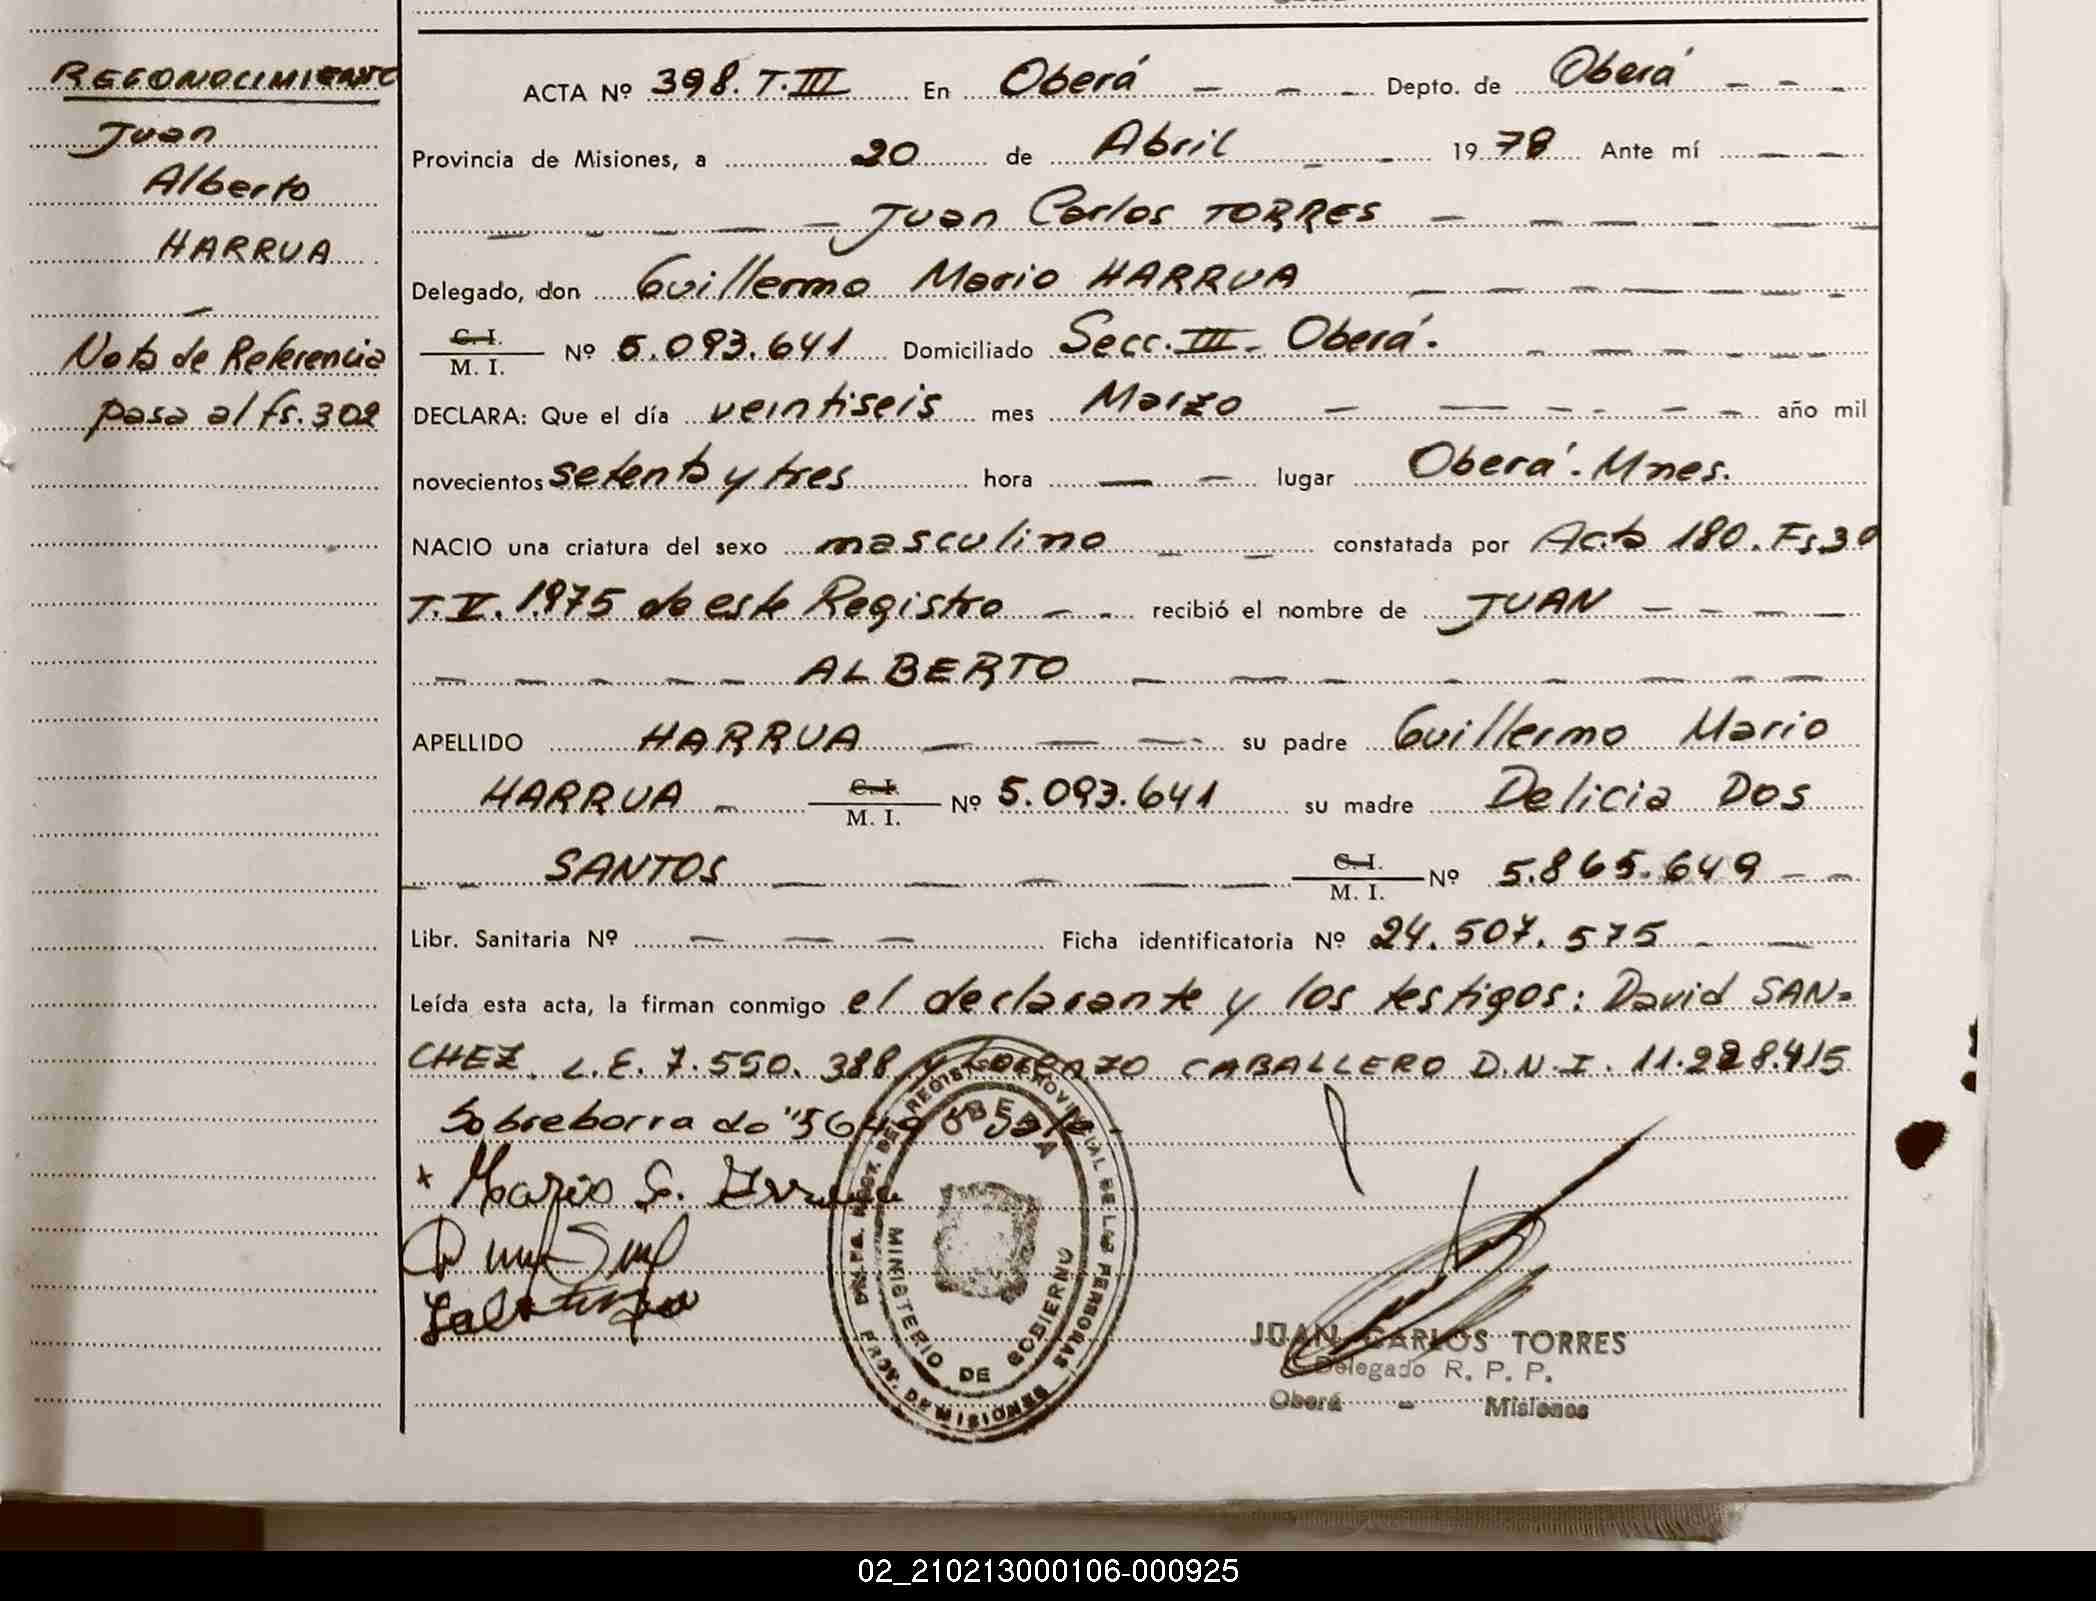 RECONOCIMIENTO
Juan
Alberto
HARRUA
Nota de Referencia
pasa al fs. 302
ACTA Nº 398. T. III En Oberá Depto. de Oberá
Provincia de Misiones, a 20 de Abril 1978 Ante mí
Juan Carlos TORRES
Delegado, don Guillermo Mario HARRUA
C. I.
M. I. Nº 5.093.641 Domiciliado Secc. III - Oberá.
DECLARA: Que el día veintiseis mes Marzo año mil
novecientos setenta y tres hora lugar Oberá. Mnes.
NACIO una criatura del sexo masculino constatada por Acta 180. Fs. 30
T. V. 1975 de este Registro recibió el nombre de JUAN
ALBERTO
APELLIDO HARRUA su padre Guillermo Mario
HARRUA C. I. M. I. Nº 5.093.641 su madre Delicia Dos
SANTOS C. I. M. I. Nº 5.865.649
Libr. Sanitaria Nº Ficha identificatoria Nº 24.507.575
Leída esta acta, la firman conmigo el declarante y los testigos: David SAN=
CHEZ. L.E. 7.550.388 y Lorenzo CABALLERO D.N.I. 11.228.415
Sobreborrado "5649" Vale.
Mario G.
OBERA
MINISTERIO DE GOBIERNO
PROV. DE MISIONES
JUAN CARLOS TORRES
Delegado R. P. P.
Oberá - Misiones
02_210213000106-000925